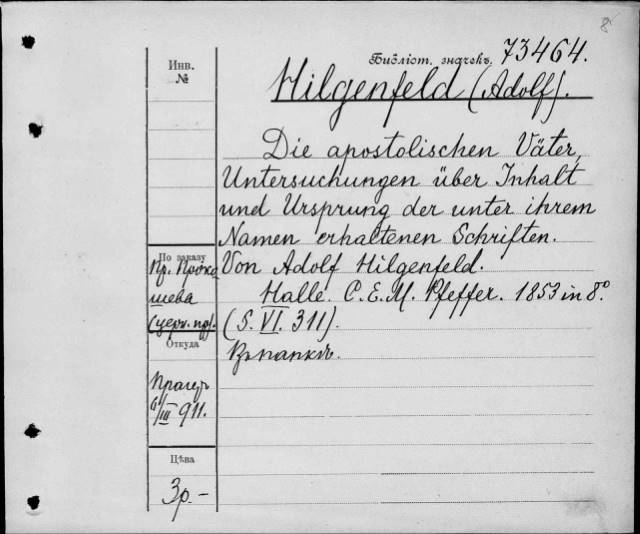 8
Библіот. значекъ. 73464.
Инв.
№
Hilgenfeld (Adolf).
Die apostolischen Väter,
Untersuchungen über Inhalt
und Ursprung der unter ihrem
Namen erhaltenen Schriften.
Von Adolf Hilgenfeld.
Halle. C. E. M. Pfeffer. 1853 in 8°
(S. VI. 311).
Въ папкѣ.
По заказу
Пр. Проко
шева
(церк. пр).
Откуда
6/III 911.
Цѣва
3р.-